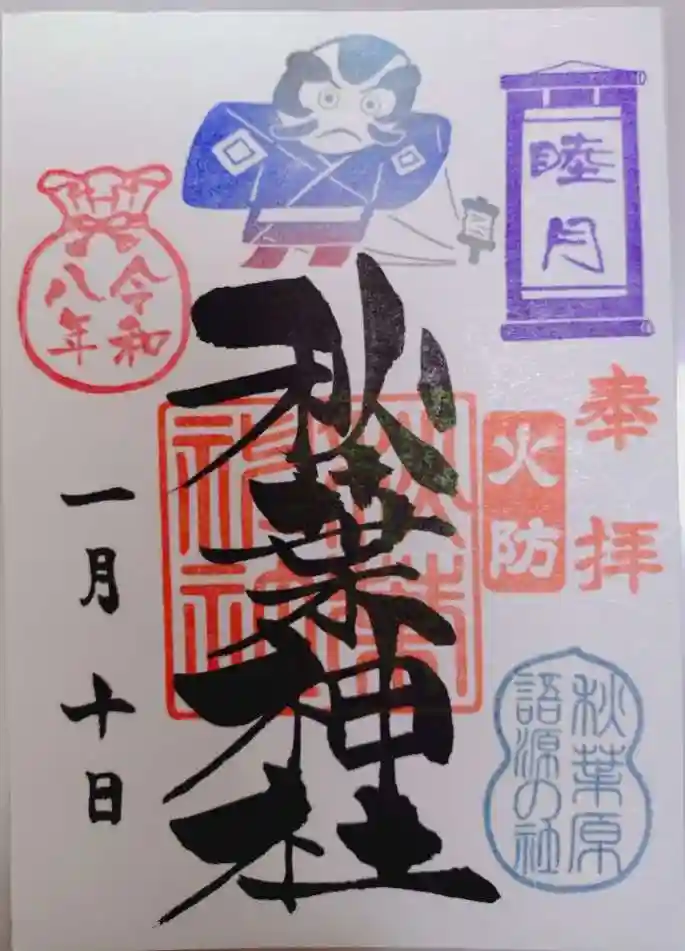 睦月
奉拝
火防
秋葉原
語源の社
秋葉神社
秋葉
神社
令和
八年
一月十日